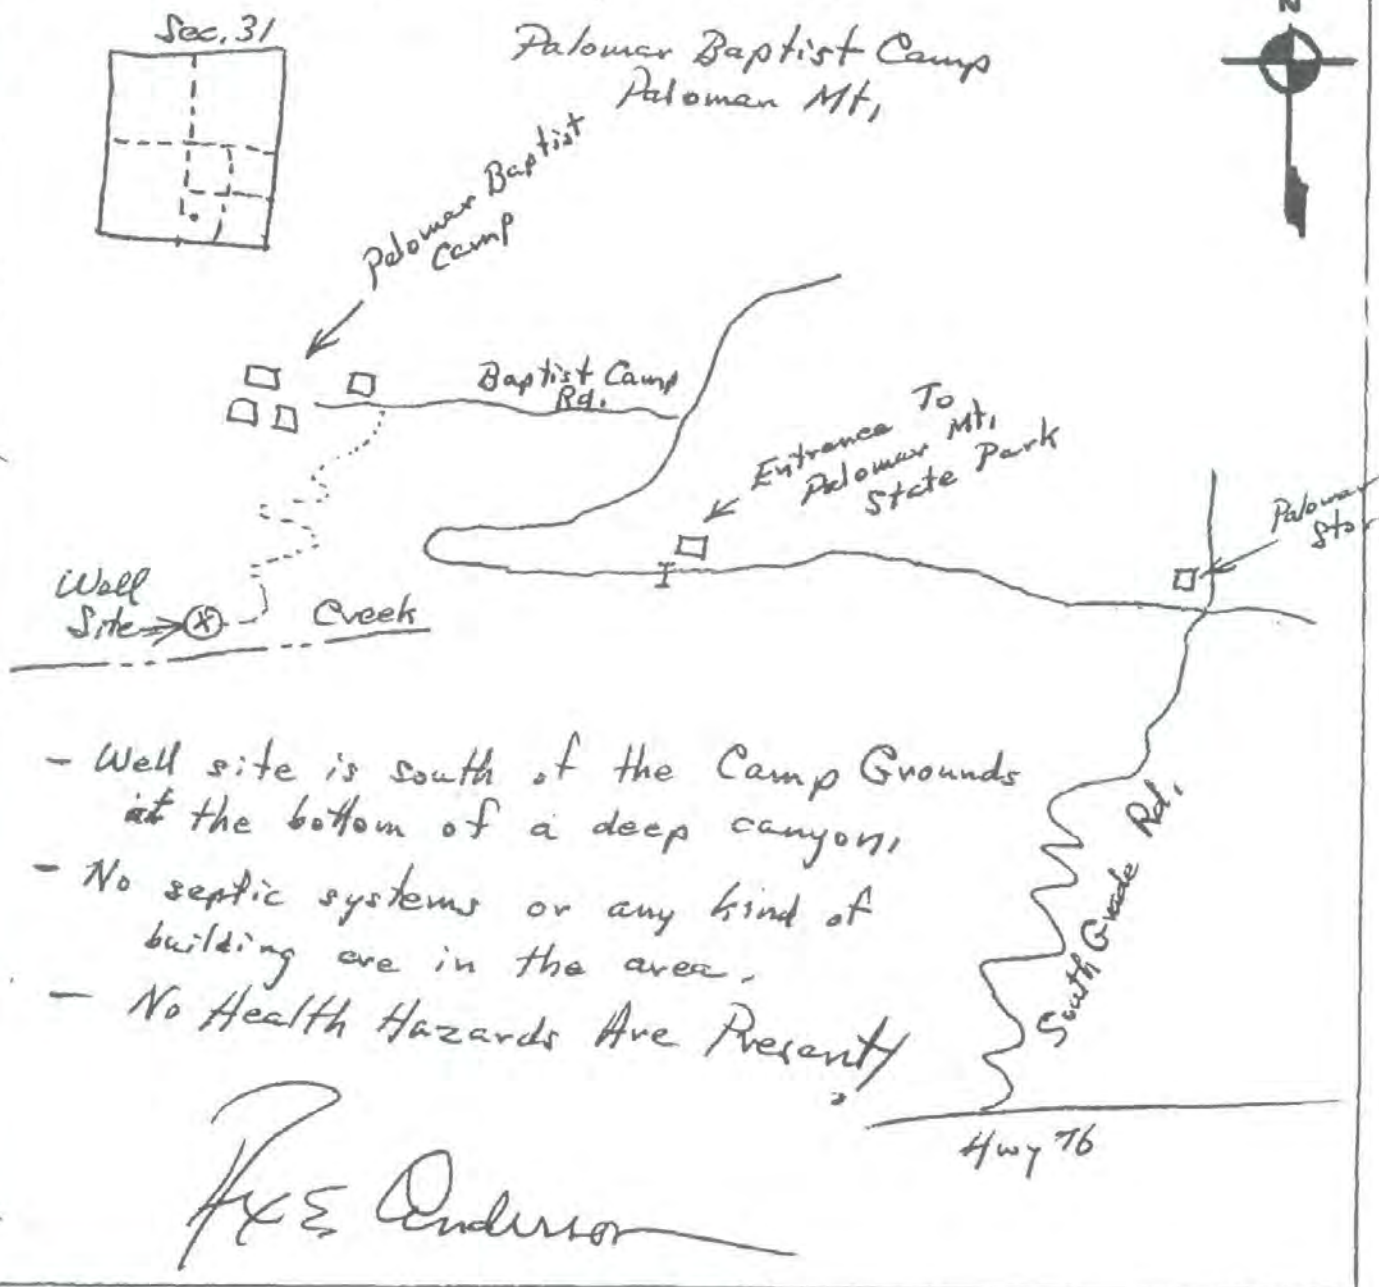 N
Sec. 31
Palomar Baptist Camp
Palomar Mt.
Palomar Baptist
Camp
Baptist Camp
Rd.
Entrance To
Palomar Mt.
State Park
Palomar
Stor
Well
Site
X
Creek
- Well site is south of the Camp Grounds
at the bottom of a deep canyon.
- No septic systems or any kind of
building are in the area.
- No Health Hazards Are Present
South Grade Rd.
Hwy 76
Anderson